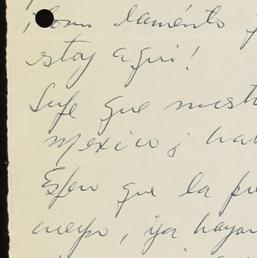 ¡Como lamento
estoy aquí!
Supe que nuest
México, ha
Espero que la
cuerpo, ya hayan